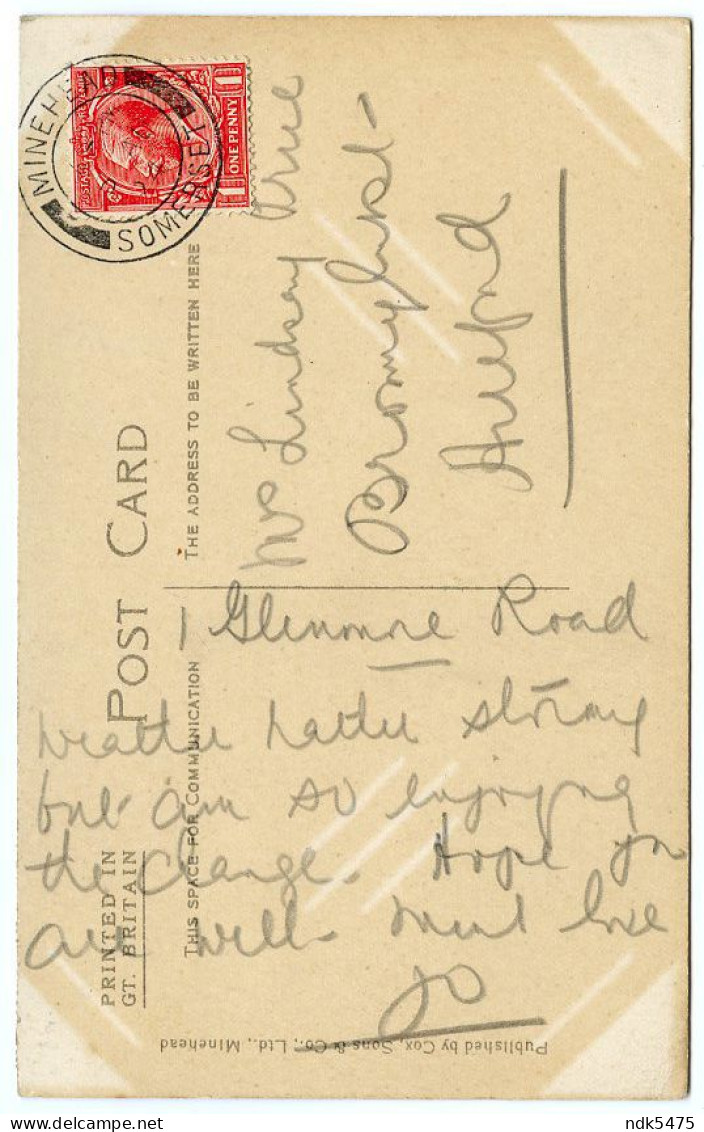 POST CARD
PRINTED IN
GT. BRITAIN
THIS SPACE FOR COMMUNICATION
THE ADDRESS TO BE WRITTEN HERE
MINEHEAD
SOMERSET
POSTAGE REVENUE
1 ONE PENNY 1
Lindsay
Hereford
1 Glenmore Road
Weather rather stormy
but am so enjoying
the change. Hope you
are well. Much love
Jo
Published by Cox, Sons & Co., Ltd., Minehead
Delcampe.net
ndk5475